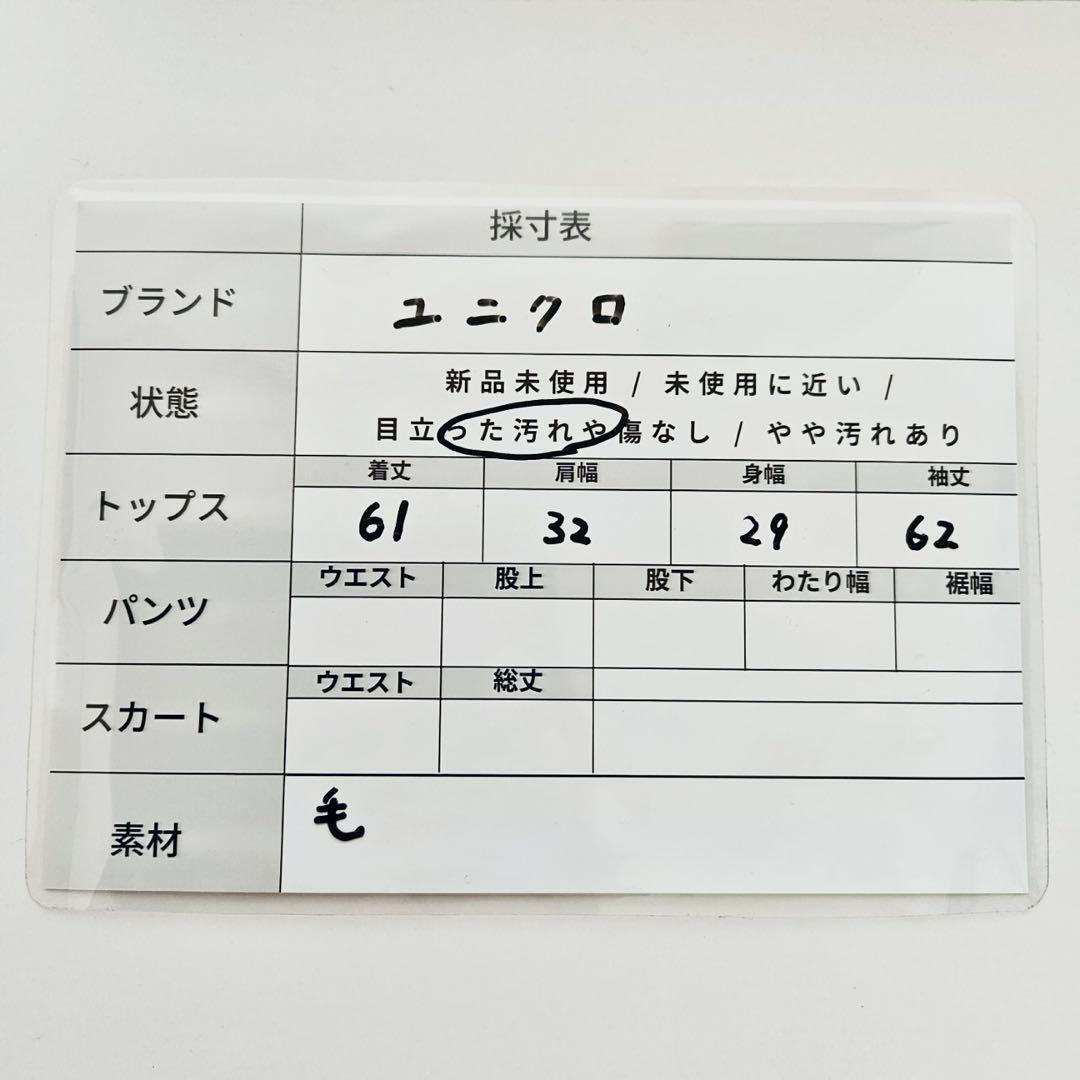 採寸表
ブランド ユニクロ
状態 新品未使用 / 未使用に近い /
目立った汚れや傷なし / やや汚れあり
トップス 着丈 肩幅 身幅 袖丈
61 32 29 62
パンツ ウエスト 股上 股下 わたり幅 裾幅
スカート ウエスト 総丈
素材 毛